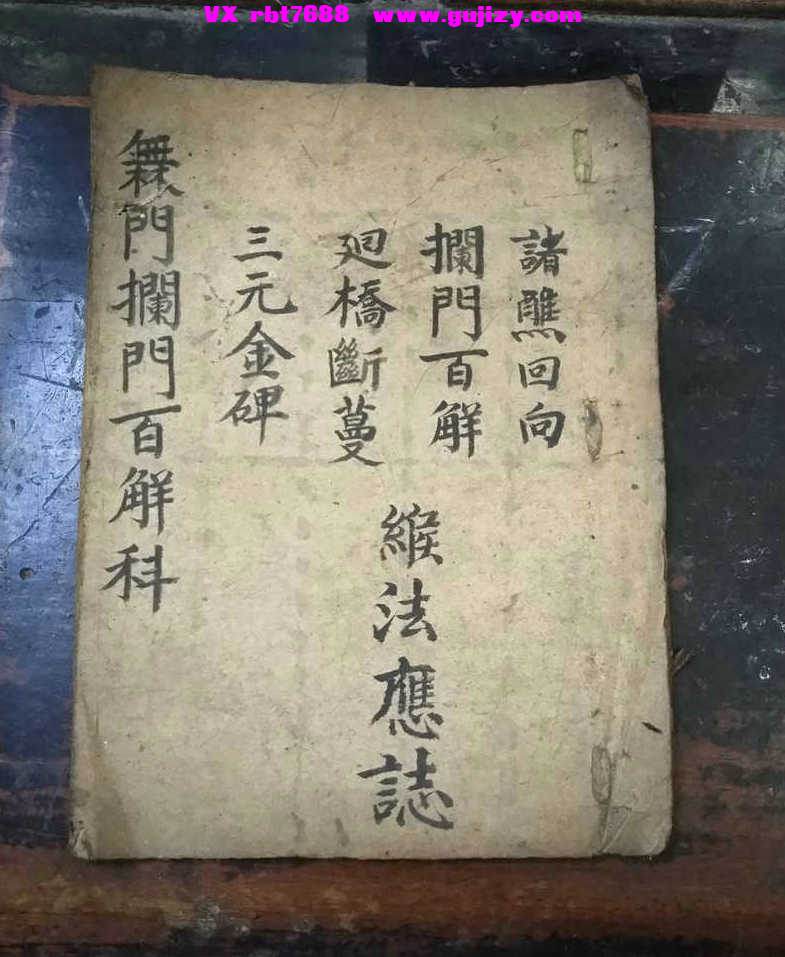 VX rbt7688 www.gujizy.com
諸醮回向
攔門百解
廻橋斷蔓
三元金碑
緱法應誌
門攔門百解科